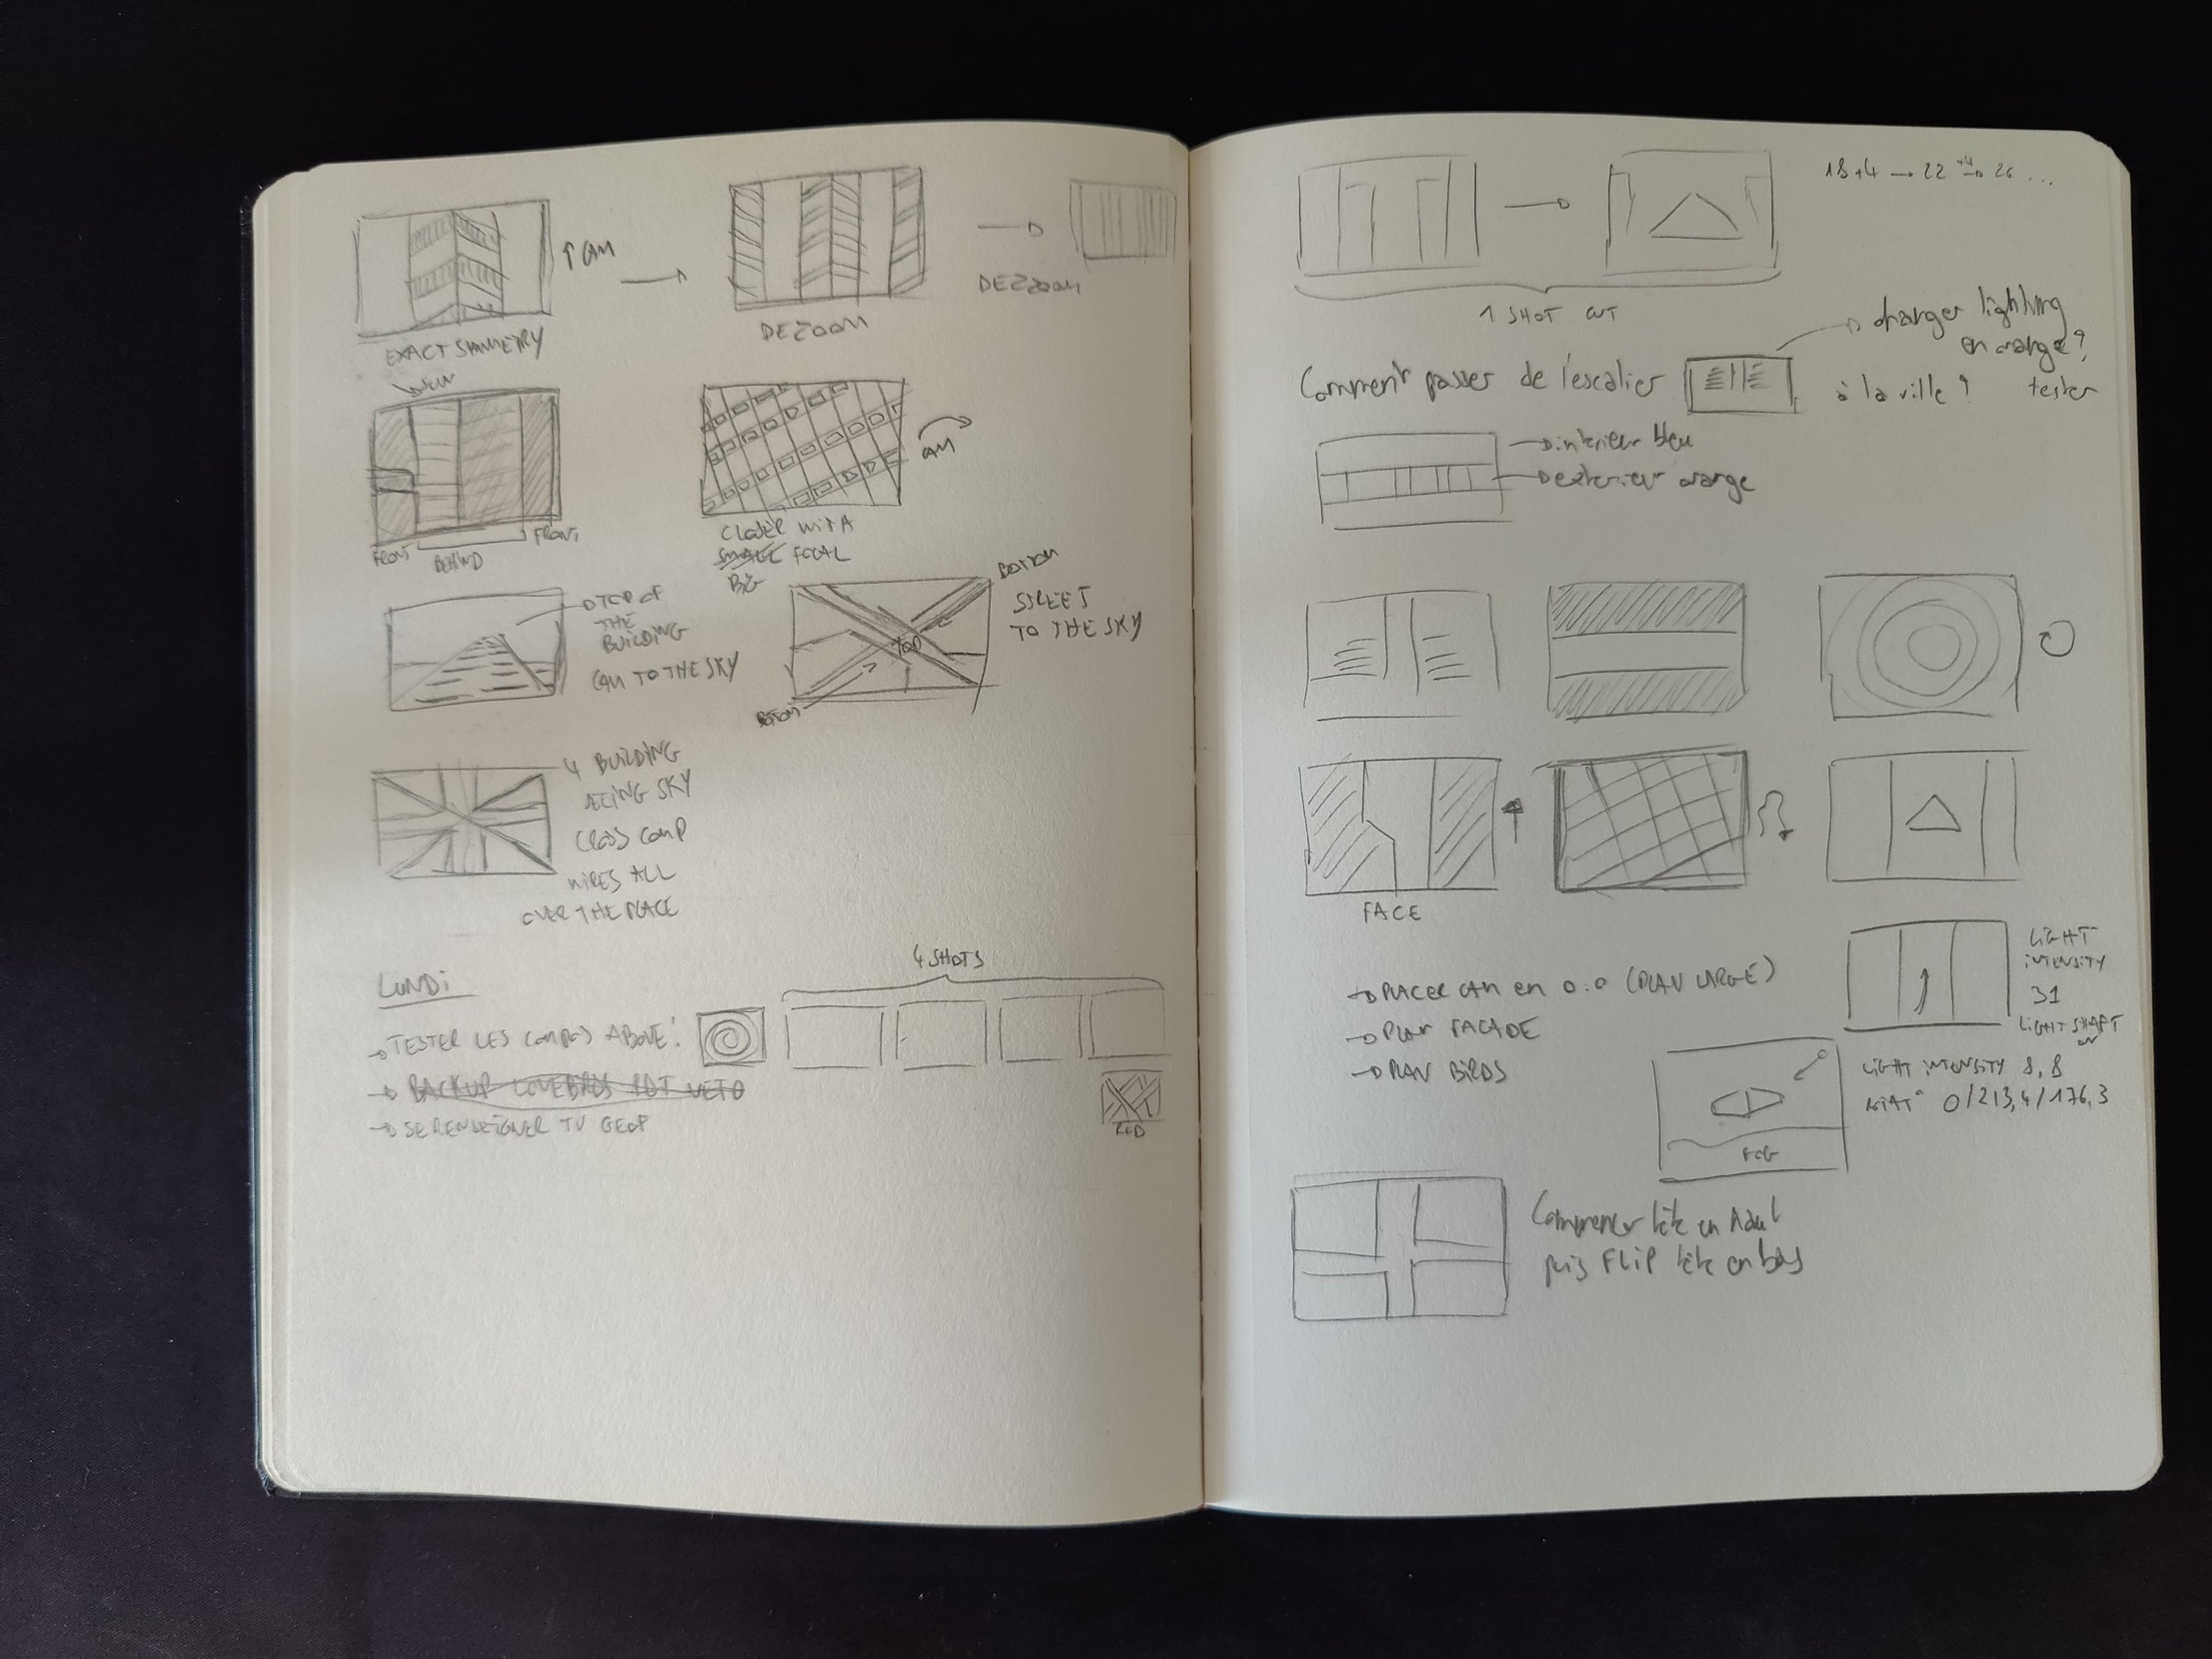 ↑ CAM
EXACT SYMMETRY
DEZOOM
DEZZOOM
FRONT
BEHIND
FRONT
CAM
CLOSER WITH A
SMALL FOCAL
BIG
TOP OF
THE
BUILDING
CAM TO THE SKY
BOTTOM
STREET
TO THE SKY
TOP
BOTTOM
4 BUILDING
FACING SKY
CROSS COMP
WIRES ALL
OVER THE PLACE
LUNDI
4 SHOTS
→ TESTER LES COMPOS ABOVE!
→ BACKUP LOVEBIRDS
→ SE RENSEIGNER TV GEOP
RED
18+4 → 22 +4→ 26 ...
1 SHOT CUT
→ changer lighting
en orange?
tester
Comment passer de l'escalier
à la ville?
→ intérieur bleu
→ extérieur orange
FACE
→ PLACER CAM en 0.0 (PLAN LARGE)
→ PLAN FACADE
→ PLAN BIRDS
LIGHT
INTENSITY
31
LIGHT SHAFT
on
LIGHT INTENSITY 8,8
ROTAT° 0/213,4/176,3
FOG
Commencer tête en haut
puis FLIP tête en bas